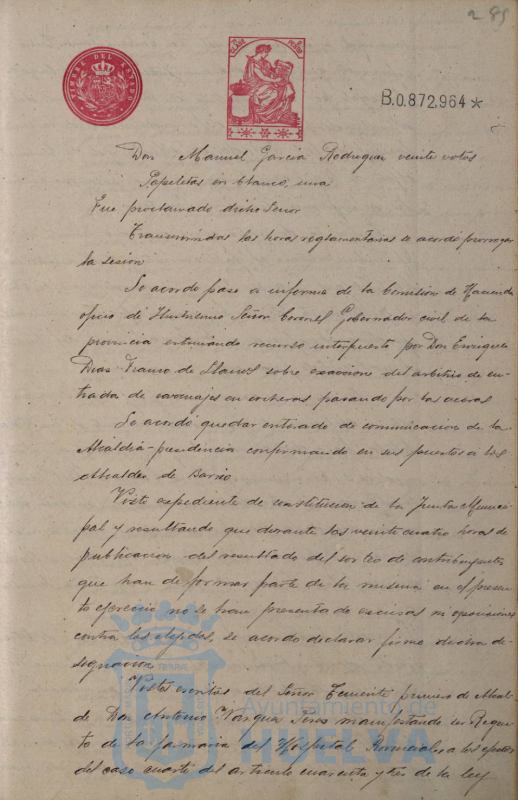 285
TIMBRE DEL ESTADO
CLASE
B.0.872,964 *
Don Manuel García Rodriguez veinte votos
Papeletas en blanco, una
Fue proclamado dicho Señor
Transcurridas las horas reglamentarias se acordó prorrogar
la sesion
Se acordó pase a informe de la Comision de Hacienda
oficio de Ilustrisimo Señor Coronel Gobernador civil de la
provincia recurso interpuesto por Don Enrique
Diaz Franco de Llanos sobre exaccion del arbitrio de en-
trada de carruajes en cocheras pasando por las aceras
Se acordó quedar enterado de comunicacion de la
Alcaldia-presidencia confirmando en sus puestos a los
Alcaldes de barrio
Visto expediente de constitucion de la Junta Munici
pal y resultando que durante las veinte cuatro horas de
publicacion del resultado del sorteo de contribuyentes
que han de formar parte de la misma en el presen
te ejercicio no se han presentado excusas ni oposiciones
contra los elegidos, se acordó declarar firme dicha de-
signacion
Vistos escritos del Señor Teniente primero de Alcal-
de Don Antonio Vazquez Perez manifestando ser Regen
te de la farmacia del Hospital Provincial, a los efectos
del caso cuarto del articulo cuarenta y tres de la ley
Ayuntamiento de
HUELVA